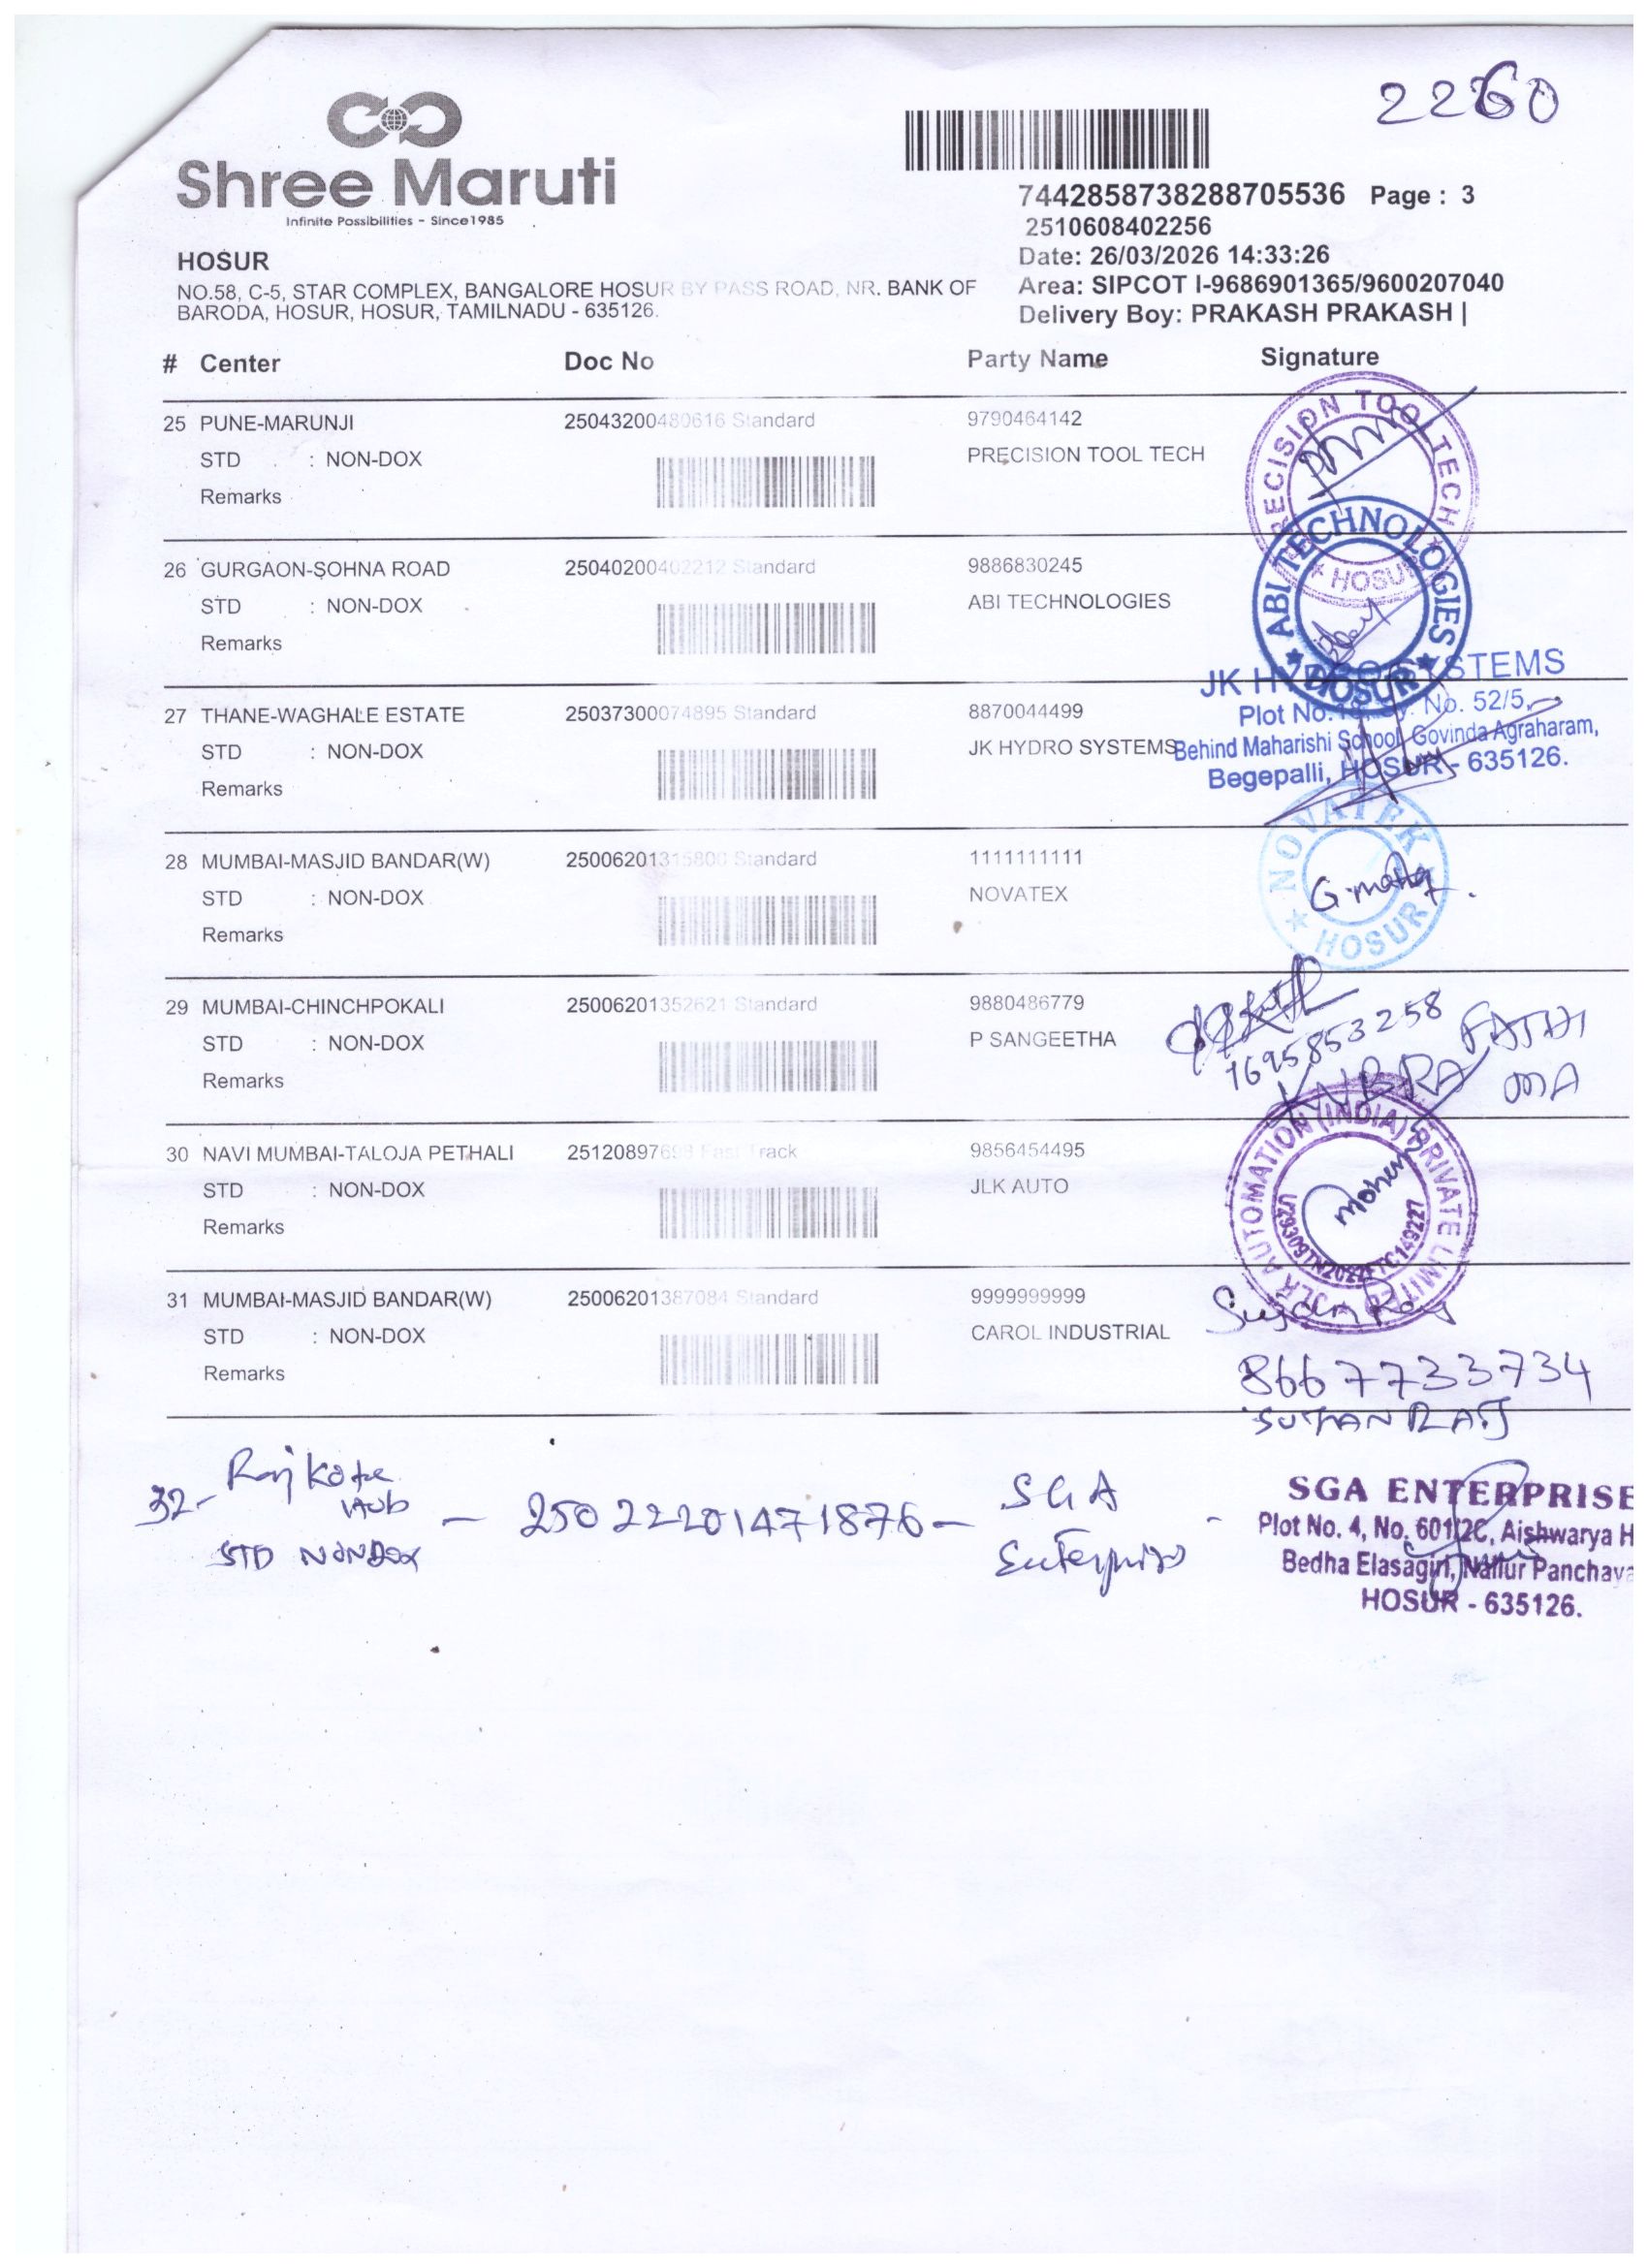 2260
Shree Maruti
Infinite Possibilities - Since1985
7442858738288705536 Page : 3
2510608402256
HOSUR
Date: 26/03/2026 14:33:26
NO.58, C-5, STAR COMPLEX, BANGALORE HOSUR BY PASS ROAD, NR. BANK OF
Area: SIPCOT I-9686901365/9600207040
BARODA, HOSUR, HOSUR, TAMILNADU - 635126.
Delivery Boy: PRAKASH PRAKASH |
# Center Doc No Party Name Signature
25 PUNE-MARUNJI 25043200480616 Standard 9790464142
STD : NON-DOX PRECISION TOOL TECH
Remarks
PRECISION TOOL TECH
★ HOSUR ★
26 GURGAON-SOHNA ROAD 25040200402212 Standard 9886830245
STD : NON-DOX ABI TECHNOLOGIES
Remarks
ABI TECHNOLOGIES
★ HOSUR ★
27 THANE-WAGHALE ESTATE 25037300074895 Standard 8870044499
STD : NON-DOX JK HYDRO SYSTEMS
Remarks
JK HYDRO SYSTEMS
Plot No. Sy. No. 52/5,
Behind Maharishi School, Govinda Agraharam,
Begepalli, HOSUR - 635126.
28 MUMBAI-MASJID BANDAR(W) 25006201315800 Standard 1111111111
STD : NON-DOX NOVATEX
Remarks
NOVATEK
★ HOSUR ★
29 MUMBAI-CHINCHPOKALI 25006201352621 Standard 9880486779
STD : NON-DOX P SANGEETHA
Remarks
7695853258
30 NAVI MUMBAI-TALOJA PETHALI 25120897693 Fast Track 9856454495
STD : NON-DOX JLK AUTO
Remarks
AUTOMATION (INDIA) PRIVATE LIMITED
31 MUMBAI-MASJID BANDAR(W) 25006201387084 Standard 9999999999
STD : NON-DOX CAROL INDUSTRIAL
Remarks
Sujan Raj
8667733734
SUJAN RAJ
32- Rajkote Hub - 25022201471876 - SGA Enterpriso -
STD NONDOX
SGA ENTERPRISE
Plot No. 4, No. 601/2C, Aishwarya H
Bedha Elasagiri, Nallur Panchaya
HOSUR - 635126.